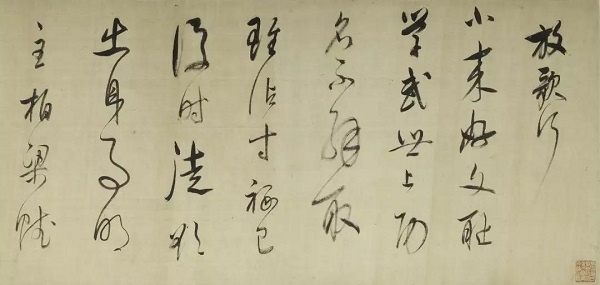 放歌行
小來好文恥
學武世上功
名不解取
雖沾寸祿已
後時徒欲
出身事明
主柏梁賦